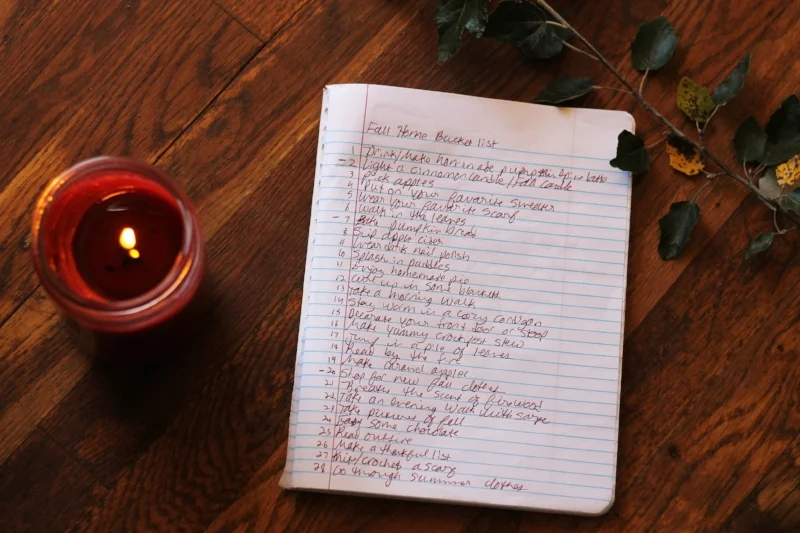 Fall Home Bucket list
Drink/Make homemade pumpkin spice latte
- 2 Light a cinnamon candle/Fall candle
3 Pick apples
4 Put on your favorite sweater
5 Wear your favorite scarf
6 Walk in the leaves
- 7 pumpkin bread
8 Sip apple cider
9 Wear dark nail polish
10 Splash in puddles
11 Enjoy homemade pie
12 Curl up in some blankets
13 Take a morning walk
14 Stay warm in a cozy cardigan
15 Decorate your front door or stoop
16 Make yummy crockpot stew
17 Jump in a pile of leaves
18 Read by the fire
19 Make caramel apples
- 20 Shop for new fall clothes
21 Breathe the scent of firewood
22 Take an evening walk with
23 Take pictures of fall
24 some chocolate
25 Read outside
26 Make a thankful list
27 Knit/Crochet a scarf
28 Go through summer clothes